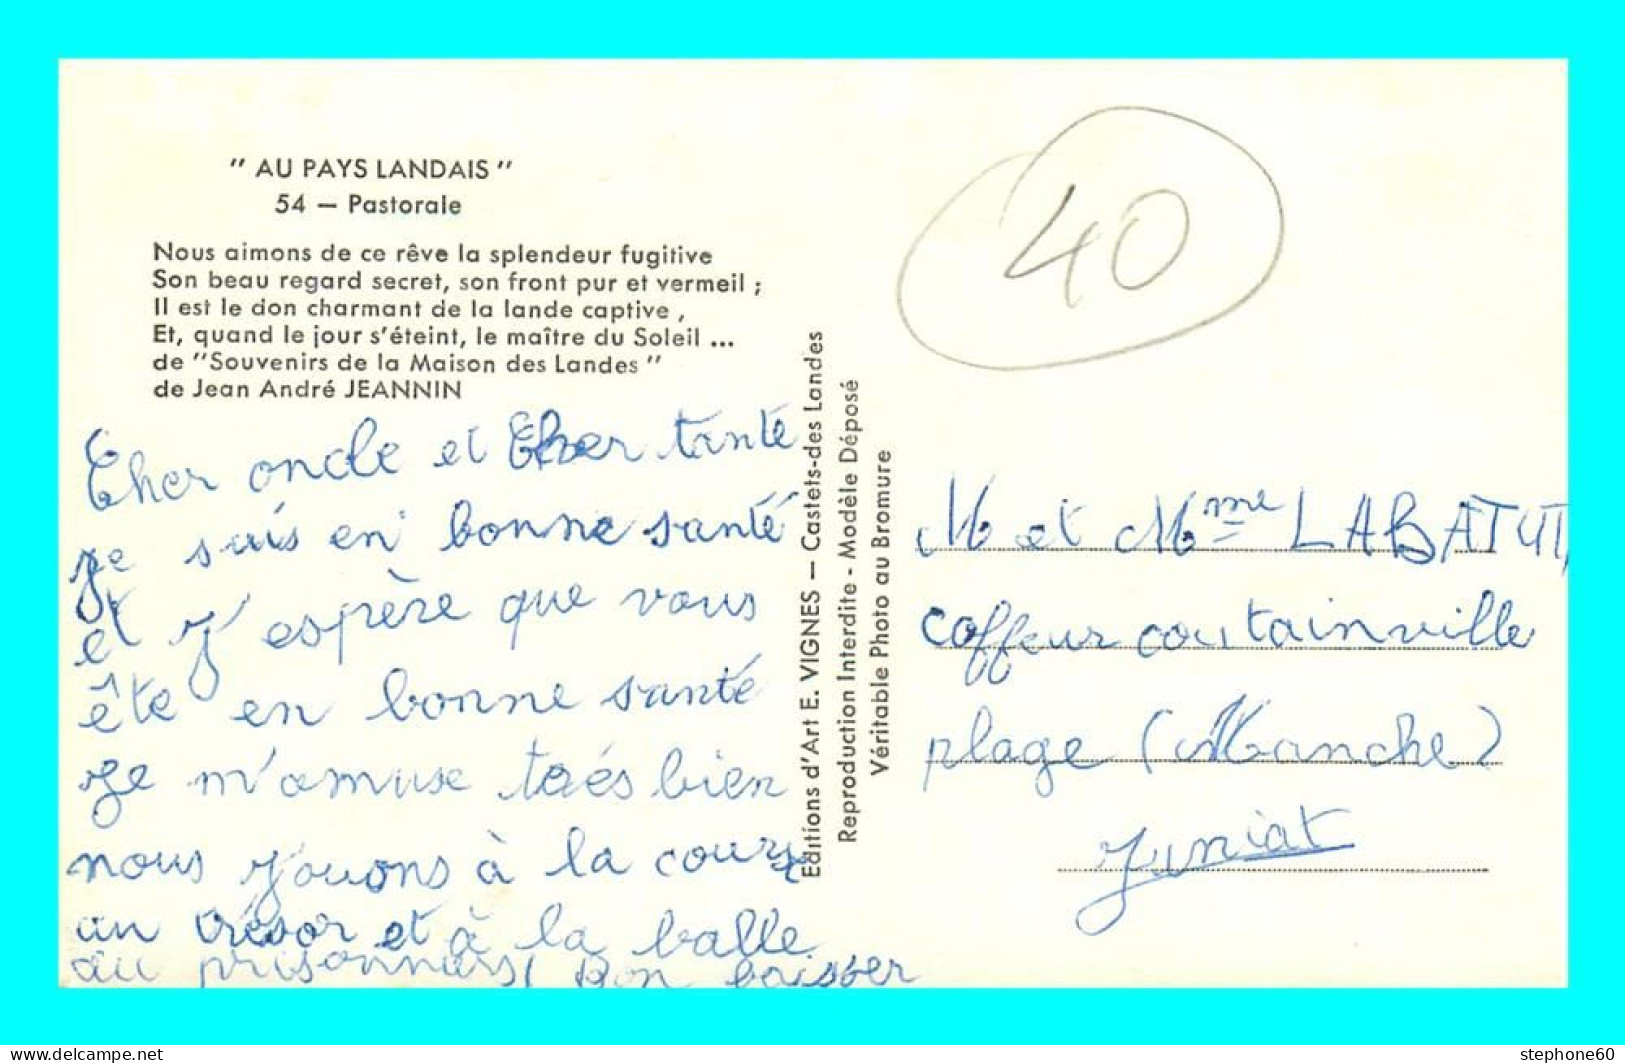 " AU PAYS LANDAIS "
54 — Pastorale
Nous aimons de ce rêve la splendeur fugitive
Son beau regard secret, son front pur et vermeil ;
Il est le don charmant de la lande captive ,
Et, quand le jour s'éteint, le maître du Soleil ...
de "Souvenirs de la Maison des Landes "
de Jean André JEANNIN
Cher oncle et Cher tante
je suis en bonne santé
et j'espère que vous
ête en bonne santé
Je m'amuse trés bien
nous jouons à la course
au trésor et à la balle
au prisonniers, bon baisser
Editions d'Art E. VIGNES — Castets-des Landes
Reproduction Interdite - Modèle Déposé
Véritable Photo au Bromure
40
M et Mme LABATUT
coffeur coutainville
plage (Manche)
stephone60